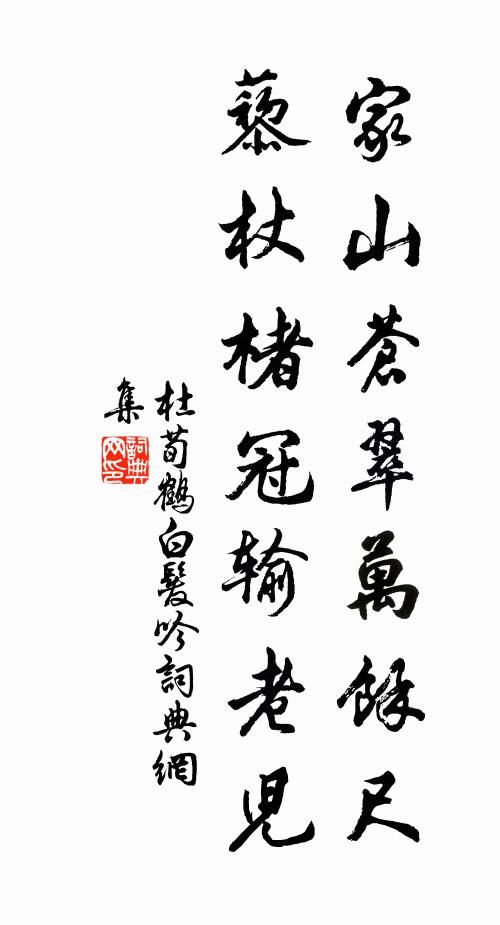 家山蒼翠萬餘尺
藜杖楮冠輸老兒
杜荀鶴白髮吟詞典網
集
詞典網印